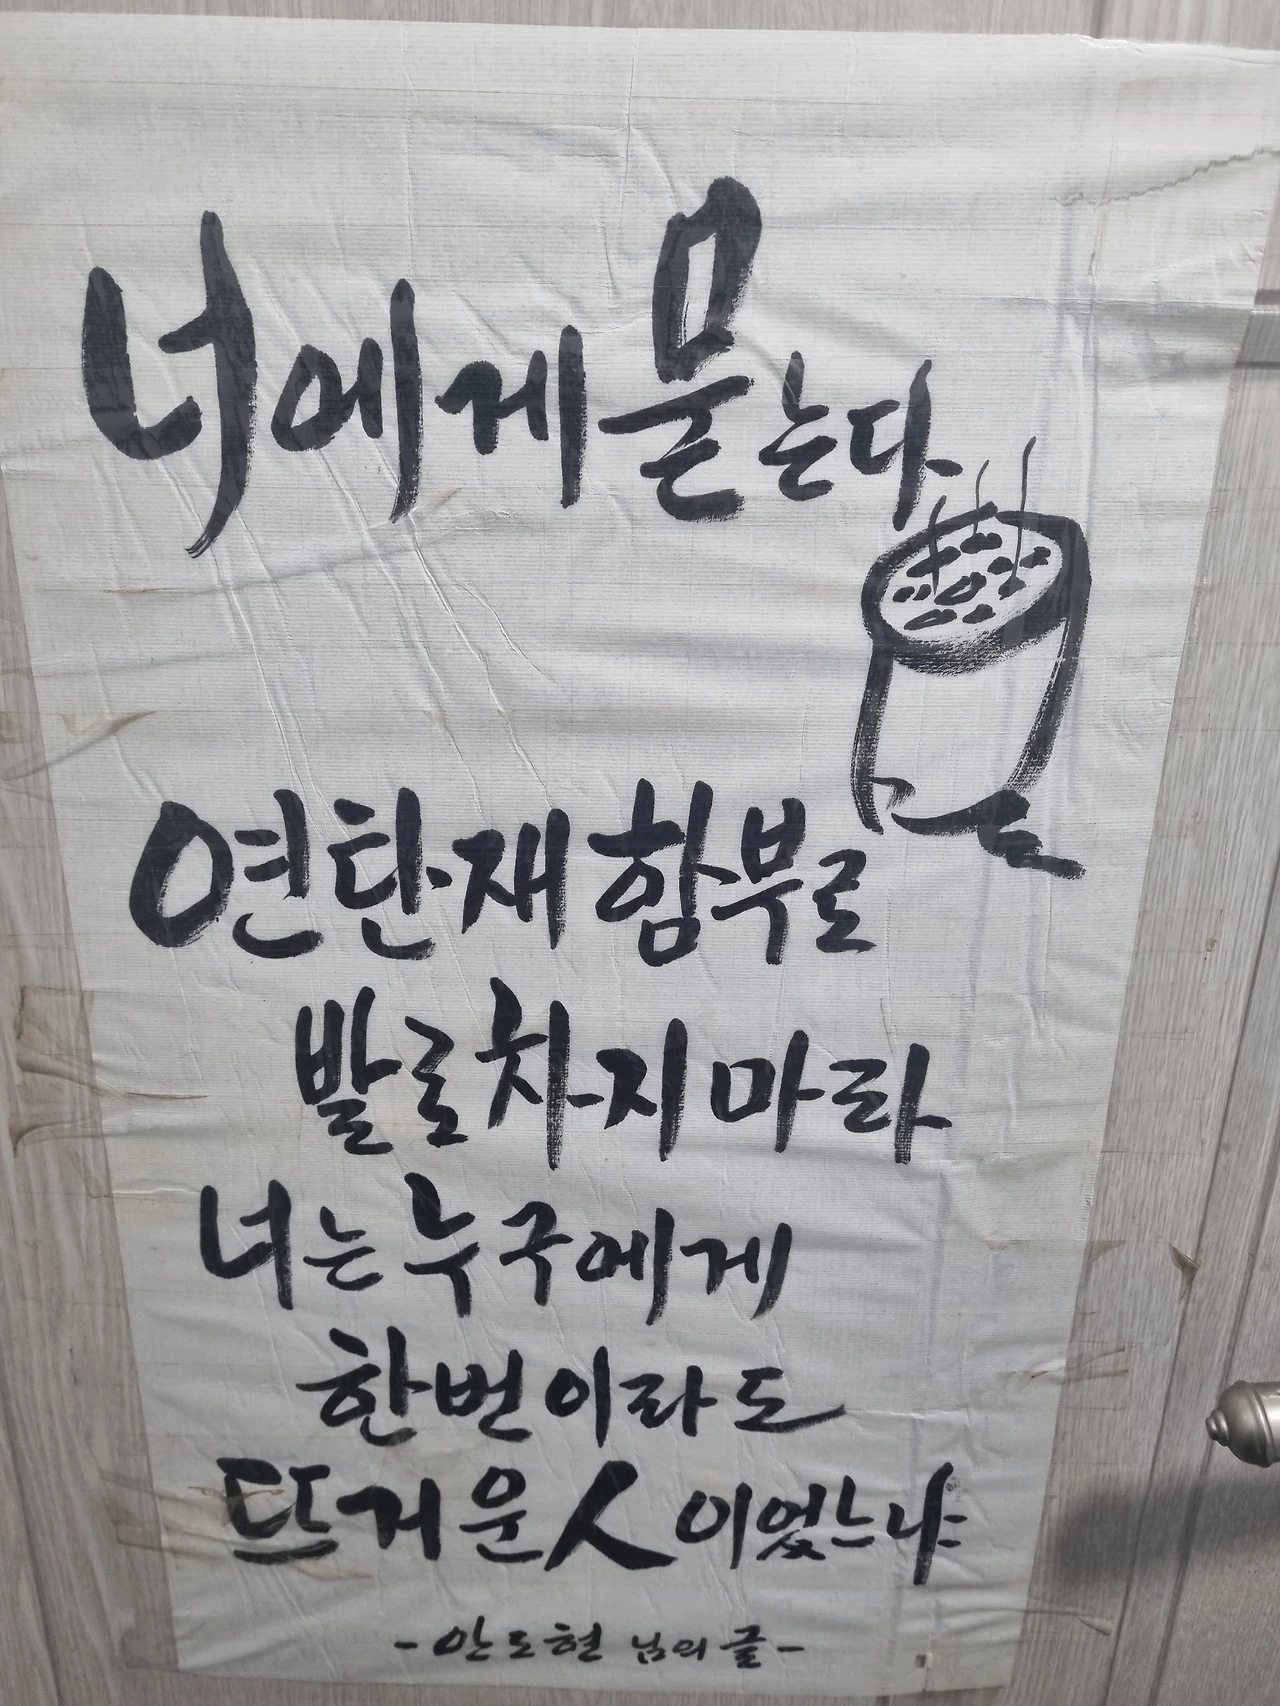 너에게 묻는다
연탄재 함부로
발로 차지 마라
너는 누구에게
한번이라도
뜨거운 人이었느냐
- 안도현 님의 글 -